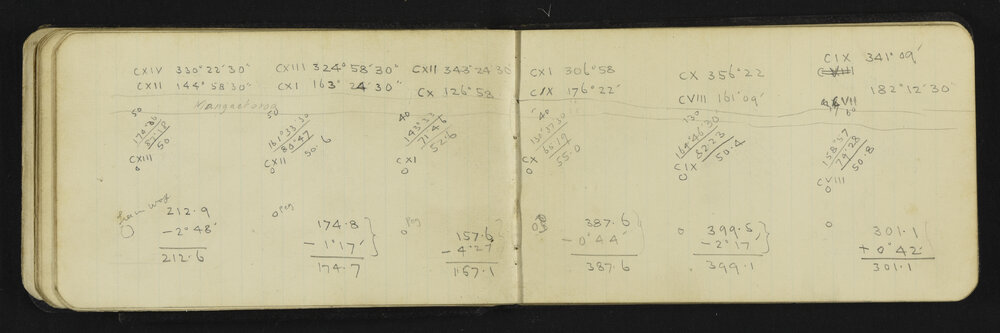 CXIV 330°22'30"
CXII 144°58'30"
50
174·30
82·18
50
CXIII
0
212.9
-2°48'
212.6
CXIII 324°58'30"
CXI 163°24'30"
50
161°33'30
80°47
50.6
CXII
0
0 Peg
174.8
-1°17'
174.7
CXII 343°24'30
CX 126°58
40
143·33
71·46
52.6
CXI
0
Peg
0
157.6
-4°27'
157.1
CXI 306°58
CIX 176°22'
40
55.0
CX
0
387.6
-0°44'
387.6
CX 356°22
CVIII 161°09'
130
164°46'30"
82·23
50.4
CIX
0
0
399.5
-2°17'
399.1
CIX 341°09'
182°12'30
CVII
158·57
79·28
50.8
CVIII
0
0
301.1
+0°42'
301.1